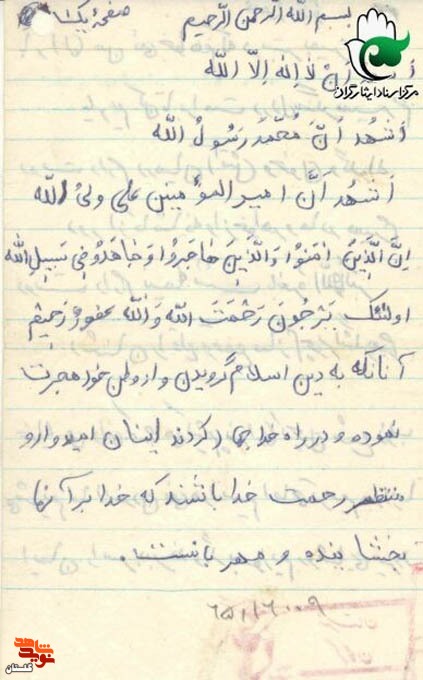 بسم الله الرحمن الرحیم
صفحهٔ یک
مرکز اسناد ایثارگران
أشهد أَنْ لٰا اِلٰهَ اِلّا اللّٰه
أَشهُد أَنَّ مُحَمَّدَ رَسُولُ اللّٰه
أَشهُد أَنَّ امیرالمؤمنین علی ولیُ اللّٰه
اِنَّ الَّذِینَ امَنوُا وَالَّذِینَ هٰاجَروُا وَ جٰاهَدُو فِی سَبِیلِ اللّٰه
اولئک یَرْجُونَ رَحْمَتَ اللّٰه وَ اللّٰه غفورٌ رَحیمٌ
آنانکه به دین اسلام گرویدن و از وطن خود هجرت
نموده و در راه خدا جهاد کردند اینان امیدوار و
منتظر رحمت خدا باشند که خدا بر آنها
بخشاینده و مهربانست.
شاهد
نوید
گلستان